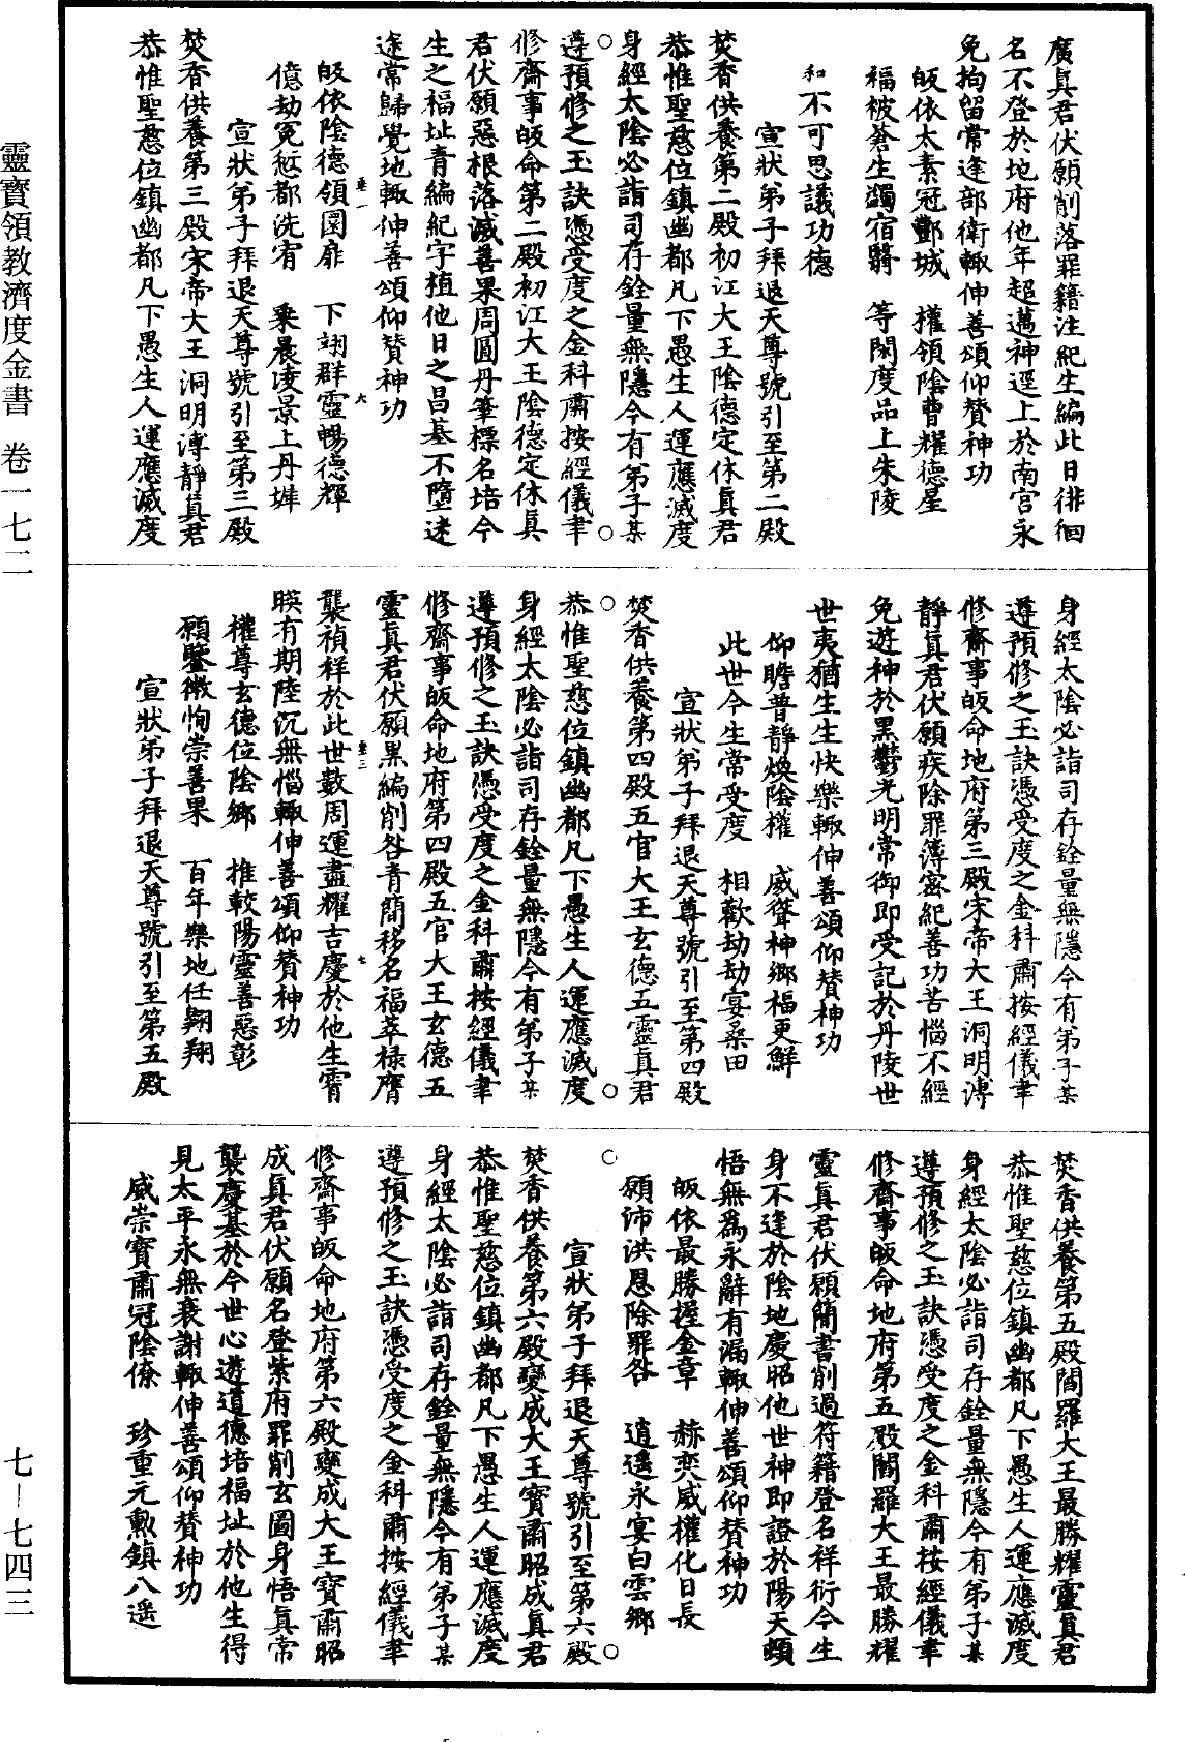 廣真君伏願削落罪籍注紀生編此日徘徊
名不登於地府他年超邁神逕上於南宮永
免拘留常逢部衛輙伸善頌仰贊神功
皈依太素冠酆城　權領陰曹耀德星
福被蒼生蠲宿翳　等閑度品上朱陵
和不可思議功德
宣狀弟子拜退天尊號引至第二殿
焚香供養第二殿初江大王陰德定休真君
恭惟聖慈位鎮幽都凡下愚生人運應滅度
身經太陰必詣司存銓量無隱今有弟子某
遵預修之玉訣憑受度之金科肅按經儀聿
修齋事皈命第二殿初江大王陰德定休真
君伏願惡根落滅善果周圓丹筆標名培今
生之福址青編紀字植他日之昌基不墮迷
途常歸覺地輙伸善頌仰贊神功
皈依陰德領圜扉　下翊群靈暢德輝
億劫冤愆都洗宥　乘晨凌景上丹墀
宣狀弟子拜退天尊號引至第三殿
焚香供養第三殿宋帝大王洞明溥靜真君
恭惟聖慈位鎮幽都凡下愚生人運應滅度
身經太陰必詣司存銓量無隱今有弟子某
遵預修之玉訣憑受度之金科肅按經儀聿
修齋事皈命地府第三殿宋帝大王洞明溥
靜真君伏願疾除罪簿密紀善功苦惱不經
免遊神於黑鬱光明常御即受記於丹陵世
世夷猶生生快樂輙伸善頌仰贊神功
仰瞻普靜煥陰權　威聳神鄉福更鮮
此世今生常受度　相歡劫劫宴桑田
宣狀弟子拜退天尊號引至第四殿
焚香供養第四殿五官大王玄德五靈真君
恭惟聖慈位鎮幽都凡下愚生人運應滅度
身經太陰必詣司存銓量無隱今有弟子某
遵預修之玉訣憑受度之金科肅按經儀聿
修齋事皈命地府第四殿五官大王玄德五
靈真君伏願黑編削咎青簡移名福萃祿膺
襲禎祥於此世數周運盡耀吉慶於他生霄
㬌有期陸沉無惱輙伸善頌仰贊神功
權尊玄德位陰鄉　推較陽靈善惡彰
願鑒微恂崇善果　百年樂地任翺翔
宣狀弟子拜退天尊號引至第五殿
焚香供養第五殿閻羅大王最勝耀靈真君
恭惟聖慈位鎮幽都凡下愚生人運應滅度
身經太陰必詣司存銓量無隱今有弟子某
遵預修之玉訣憑受度之金科肅按經儀聿
修齋事皈命地府第五殿閻羅大王最勝耀
靈真君伏願簡書削過符籍登名祥衍今生
身不逢於陰地慶昭他世神即證於陽天頓
悟無為永辭有漏輙伸善頌仰贊神功
皈依最勝握金章　赫奕威權化日長
願沛洪恩除罪咎　逍遙永宴白雲鄉
宣狀弟子拜退天尊號引至第六殿
焚香供養第六殿變成大王寶肅昭成真君
恭惟聖慈位鎮幽都凡下愚生人運應滅度
身經太陰必詣司存銓量無隱今有弟子某
遵預修之玉訣憑受度之金科肅按經儀聿
修齋事皈命地府第六殿變成大王寶肅昭
成真君伏願名登紫府罪削玄圖身悟真常
襲慶基於今世心遊道德培福址於他生得
見太平永無衰謝輙伸善頌仰贊神功
威崇寶肅冠陰僚　珍重元勳鎮八遥
靈寶領教濟度金書　卷一七二
七—七四三